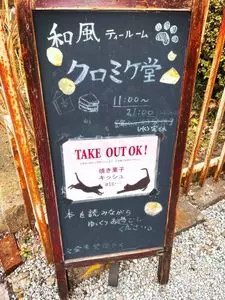 和風ティールーム
クロミケ堂
11:00〜
21:00
TAKE OUT OK!
焼き菓子
キッシュ
etc…
本を読みながら
ゆっくりお過ごし
ください。